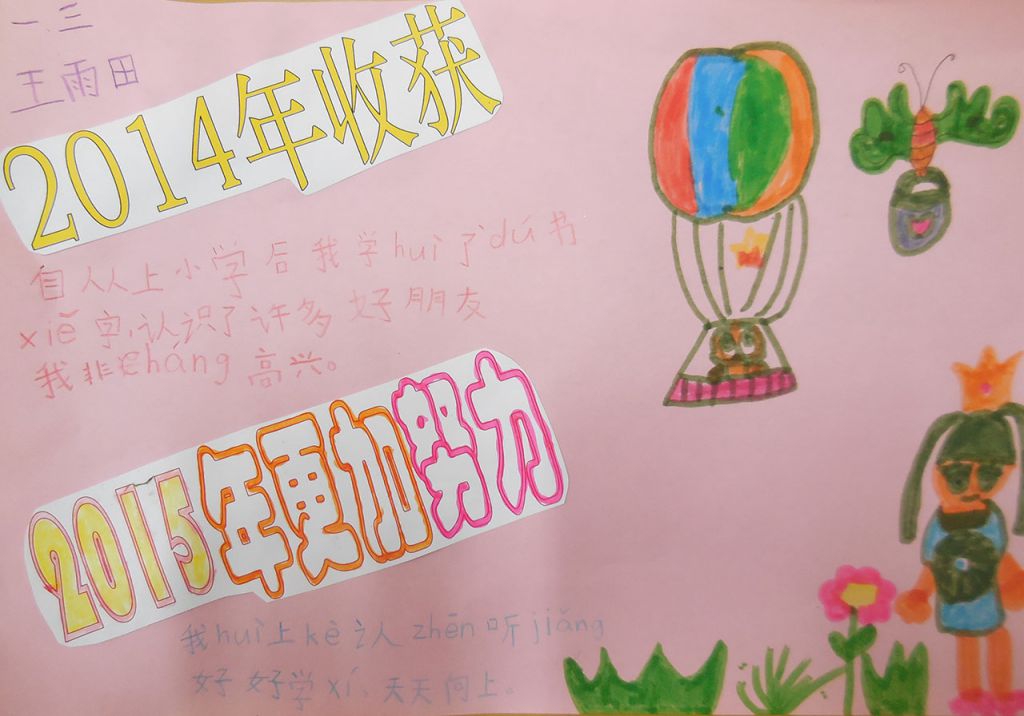 一.三
王雨田
2014年收获
自从上小学后我学huì了dú书
xiě字,认识了许多好朋友
我非cháng高兴。
2015年更加努力
我huì上kè认zhēn听jiǎng
好好学xí、天天向上。